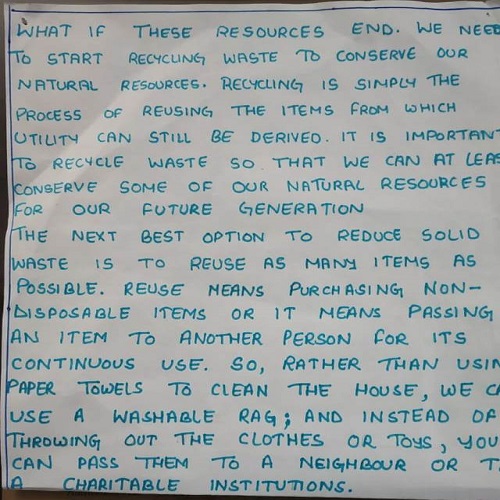 WHAT IF THESE RESOURCES END. WE NEED
TO START RECYCLING WASTE TO CONSERVE OUR
NATURAL RESOURCES. RECYCLING IS SIMPLY THE
PROCESS OF REUSING THE ITEMS FROM WHICH
UTILITY CAN STILL BE DERIVED. IT IS IMPORTAN
TO RECYCLE WASTE SO THAT WE CAN AT LEAS
CONSERVE SOME OF OUR NATURAL RESOURCES
FOR OUR FUTURE GENERATION
THE NEXT BEST OPTION TO REDUCE SOLID
WASTE IS TO REUSE AS MANY ITEMS AS
POSSIBLE. REUSE MEANS PURCHASING NON-
DISPOSABLE ITEMS OR IT MEANS PASSING
AN ITEM TO ANOTHER PERSON FOR ITS
CONTINUOUS USE. SO, RATHER THAN USIN
PAPER TOWELS TO CLEAN THE HOUSE, WE CA
USE A WASHABLE RAG; AND INSTEAD OF
THROWING OUT THE CLOTHES OR TOYS, YOU
CAN PASS THEM TO A NEIGHBOUR OR T
A CHARITABLE INSTITUTIONS.